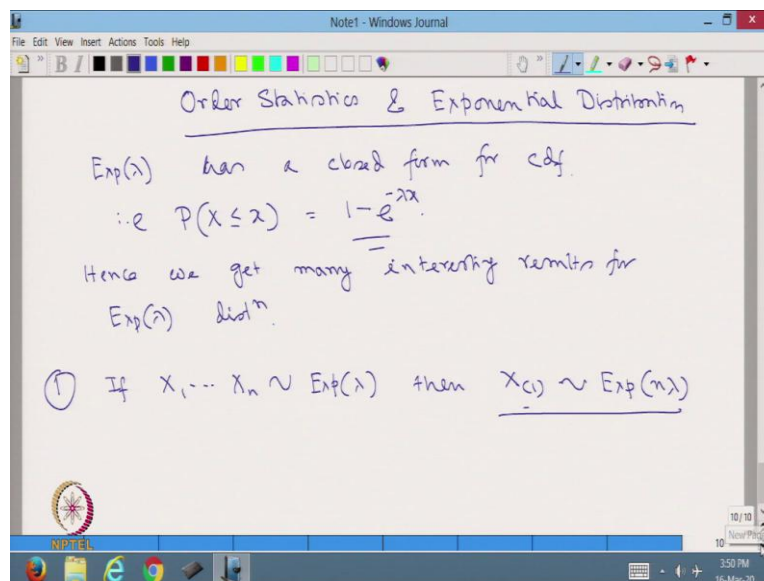 Note1 - Windows Journal
File Edit View Insert Actions Tools Help
B I
Order Statistics & Exponential Distribution
Exp(λ) has a closed form for cdf.
i.e P(X ≤ x) = 1 - e^{-λx}.
Hence we get many interesting results for
Exp(λ) distⁿ.
① If X₁ ... Xₙ ~ Exp(λ) then X₍₁₎ ~ Exp(nλ)
NPTEL
10/10
10
New Pag
3:50 PM
16-Mar-20